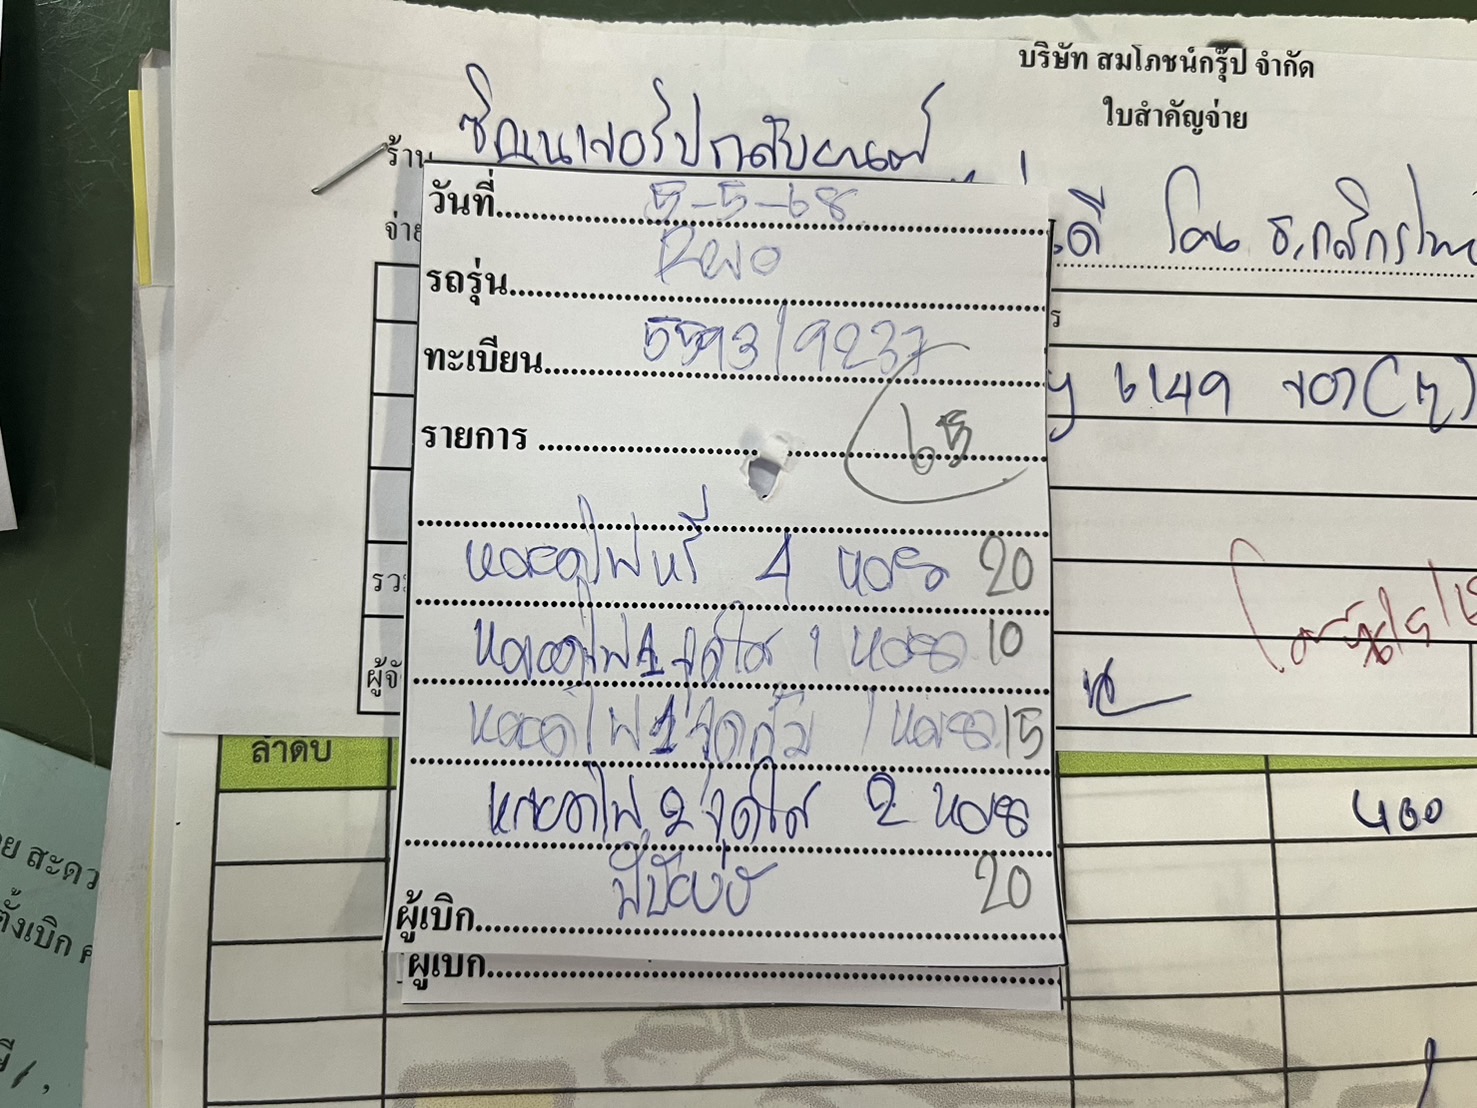 บริษัท สมโภชน์กรุ๊ป จำกัด
ใบสำคัญจ่าย
ร้าน
จ่าย
ดี โดย ธ.กสิกรไทย
วันที่ 5-5-68
รถรุ่น Revo
ทะเบียน 5593/9237
6149
รายการ 65
หลอดไฟหรี่ 4 หลอด 20
หลอดไฟ 1 จุดใส 1 หลอด 10
หลอดไฟ 1 จุดส้ม 1 หลอด 15
หลอดไฟ 2 จุดใส 2 หลอด
20
ผู้เบิก
ผู้เบิก
รวม
ผู้จั
ลำดับ
400
ย สะดว
ตั้งเบิก ค